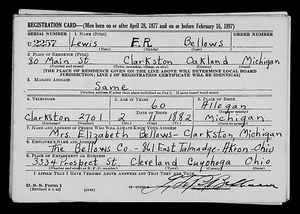 REGISTRATION CARD—(Men born on or after April 28, 1877 and on or before February 16, 1897)
SERIAL NUMBER 1. NAME (Print) ORDER NUMBER
U 2257 Lewis E.R. Bellows
2. PLACE OF RESIDENCE (Print)
80 Main St. Clarkston Oakland Michigan
[THE PLACE OF RESIDENCE GIVEN ON THE LINE ABOVE WILL DETERMINE LOCAL BOARD
JURISDICTION; LINE 2 OF REGISTRATION CERTIFICATE WILL BE IDENTICAL]
3. MAILING ADDRESS
Same
4. TELEPHONE 5. AGE IN YEARS 6. PLACE OF BIRTH
60 Allegan
DATE OF BIRTH
Clarkston 2701 2 11 1882 Michigan
7. NAME AND ADDRESS OF PERSON WHO WILL ALWAYS KNOW YOUR ADDRESS
Mrs. Elizabeth Bellows - Clarkston, Michigan
8. EMPLOYER'S NAME AND ADDRESS
The Bellows Co. - 861 East Talmadge - Akron - Ohio
9. PLACE OF EMPLOYMENT OR BUSINESS
Prospect St. Cleveland Cuyahoga Ohio
I AFFIRM THAT I HAVE VERIFIED ABOVE ANSWERS AND THAT THEY ARE TRUE.
D. S. S. Form 1
(Revised 4-1-42)